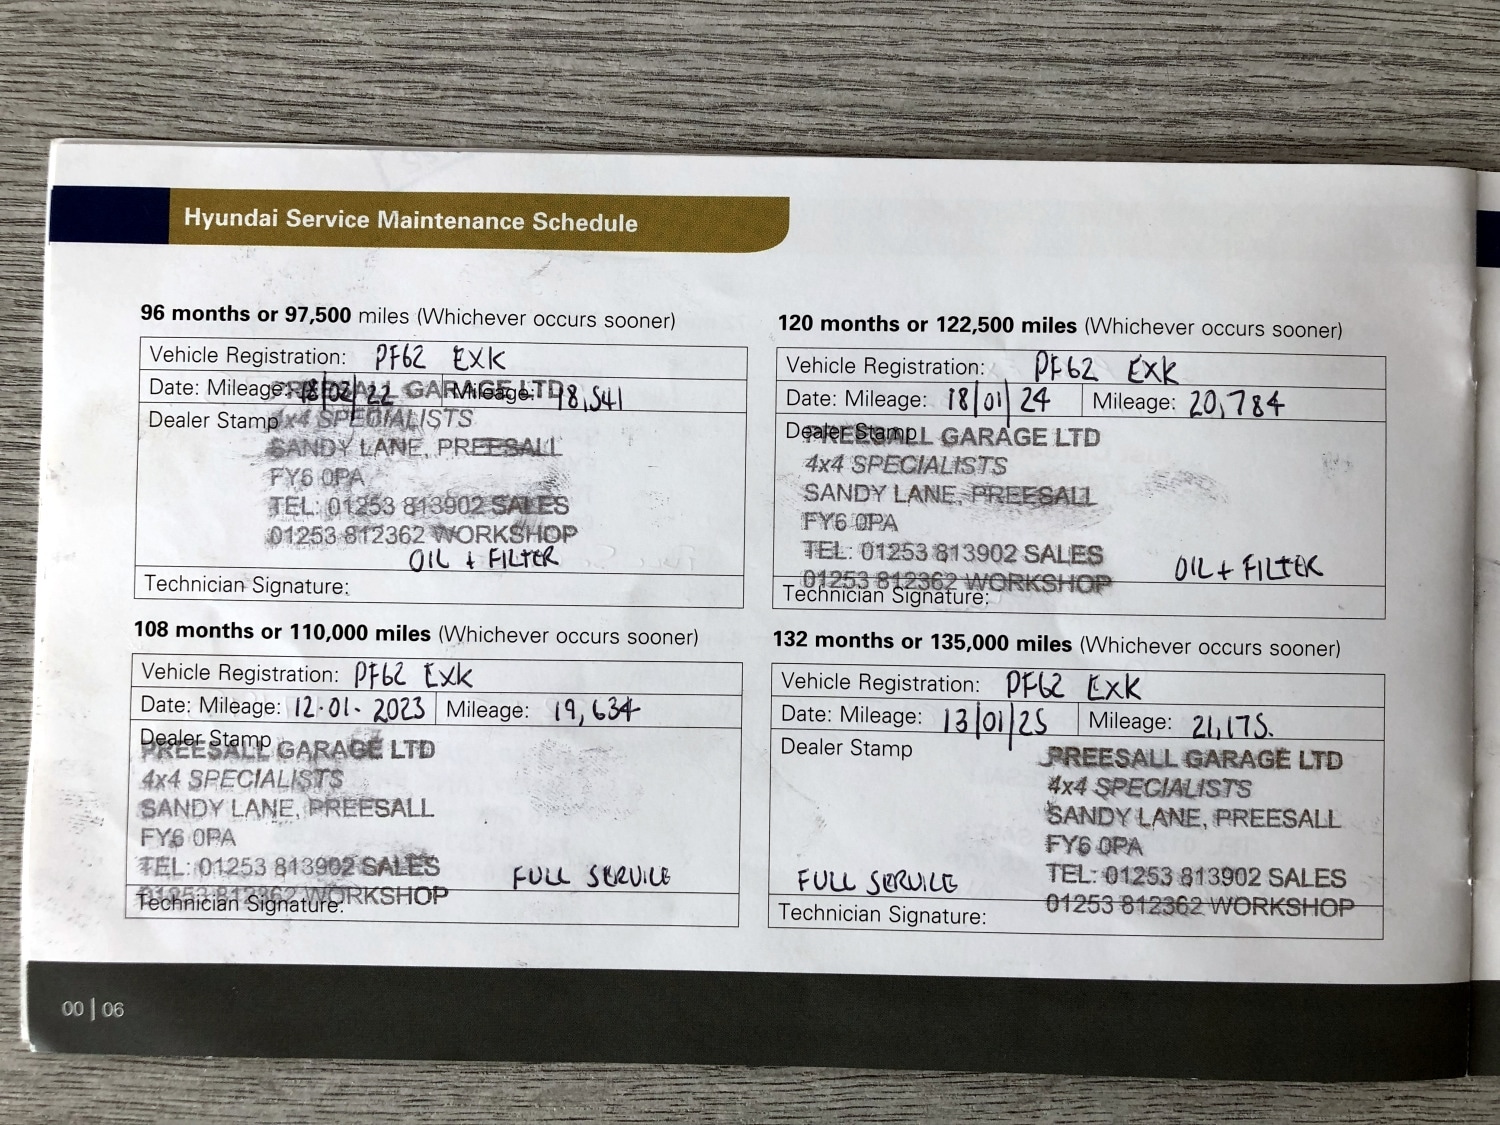 Hyundai Service Maintenance Schedule
96 months or 97,500 miles (Whichever occurs sooner)
Vehicle Registration: PF62 EXK
Date: Mileage: 18/02/22 Mileage: 18,541
Dealer Stamp
PREESALL GARAGE LTD
4x4 SPECIALISTS
SANDY LANE, PREESALL
FY6 0PA
TEL: 01253 813902 SALES
01253 812362 WORKSHOP
OIL + FILTER
Technician Signature:
108 months or 110,000 miles (Whichever occurs sooner)
Vehicle Registration: PF62 EXK
Date: Mileage: 12.01.2023 Mileage: 19,634
Dealer Stamp
PREESALL GARAGE LTD
4x4 SPECIALISTS
SANDY LANE, PREESALL
FY6 0PA
TEL: 01253 813902 SALES
01253 812362 WORKSHOP
FULL SERVICE
Technician Signature:
120 months or 122,500 miles (Whichever occurs sooner)
Vehicle Registration: PF62 EXK
Date: Mileage: 18/01/24 Mileage: 20,784
Dealer Stamp
PREESALL GARAGE LTD
4x4 SPECIALISTS
SANDY LANE, PREESALL
FY6 0PA
TEL: 01253 813902 SALES
01253 812362 WORKSHOP
OIL + FILTER
Technician Signature:
132 months or 135,000 miles (Whichever occurs sooner)
Vehicle Registration: PF62 EXK
Date: Mileage: 13/01/25 Mileage: 21,175.
Dealer Stamp
PREESALL GARAGE LTD
4x4 SPECIALISTS
SANDY LANE, PREESALL
FY6 0PA
TEL: 01253 813902 SALES
01253 812362 WORKSHOP
FULL SERVICE
Technician Signature:
00 | 06